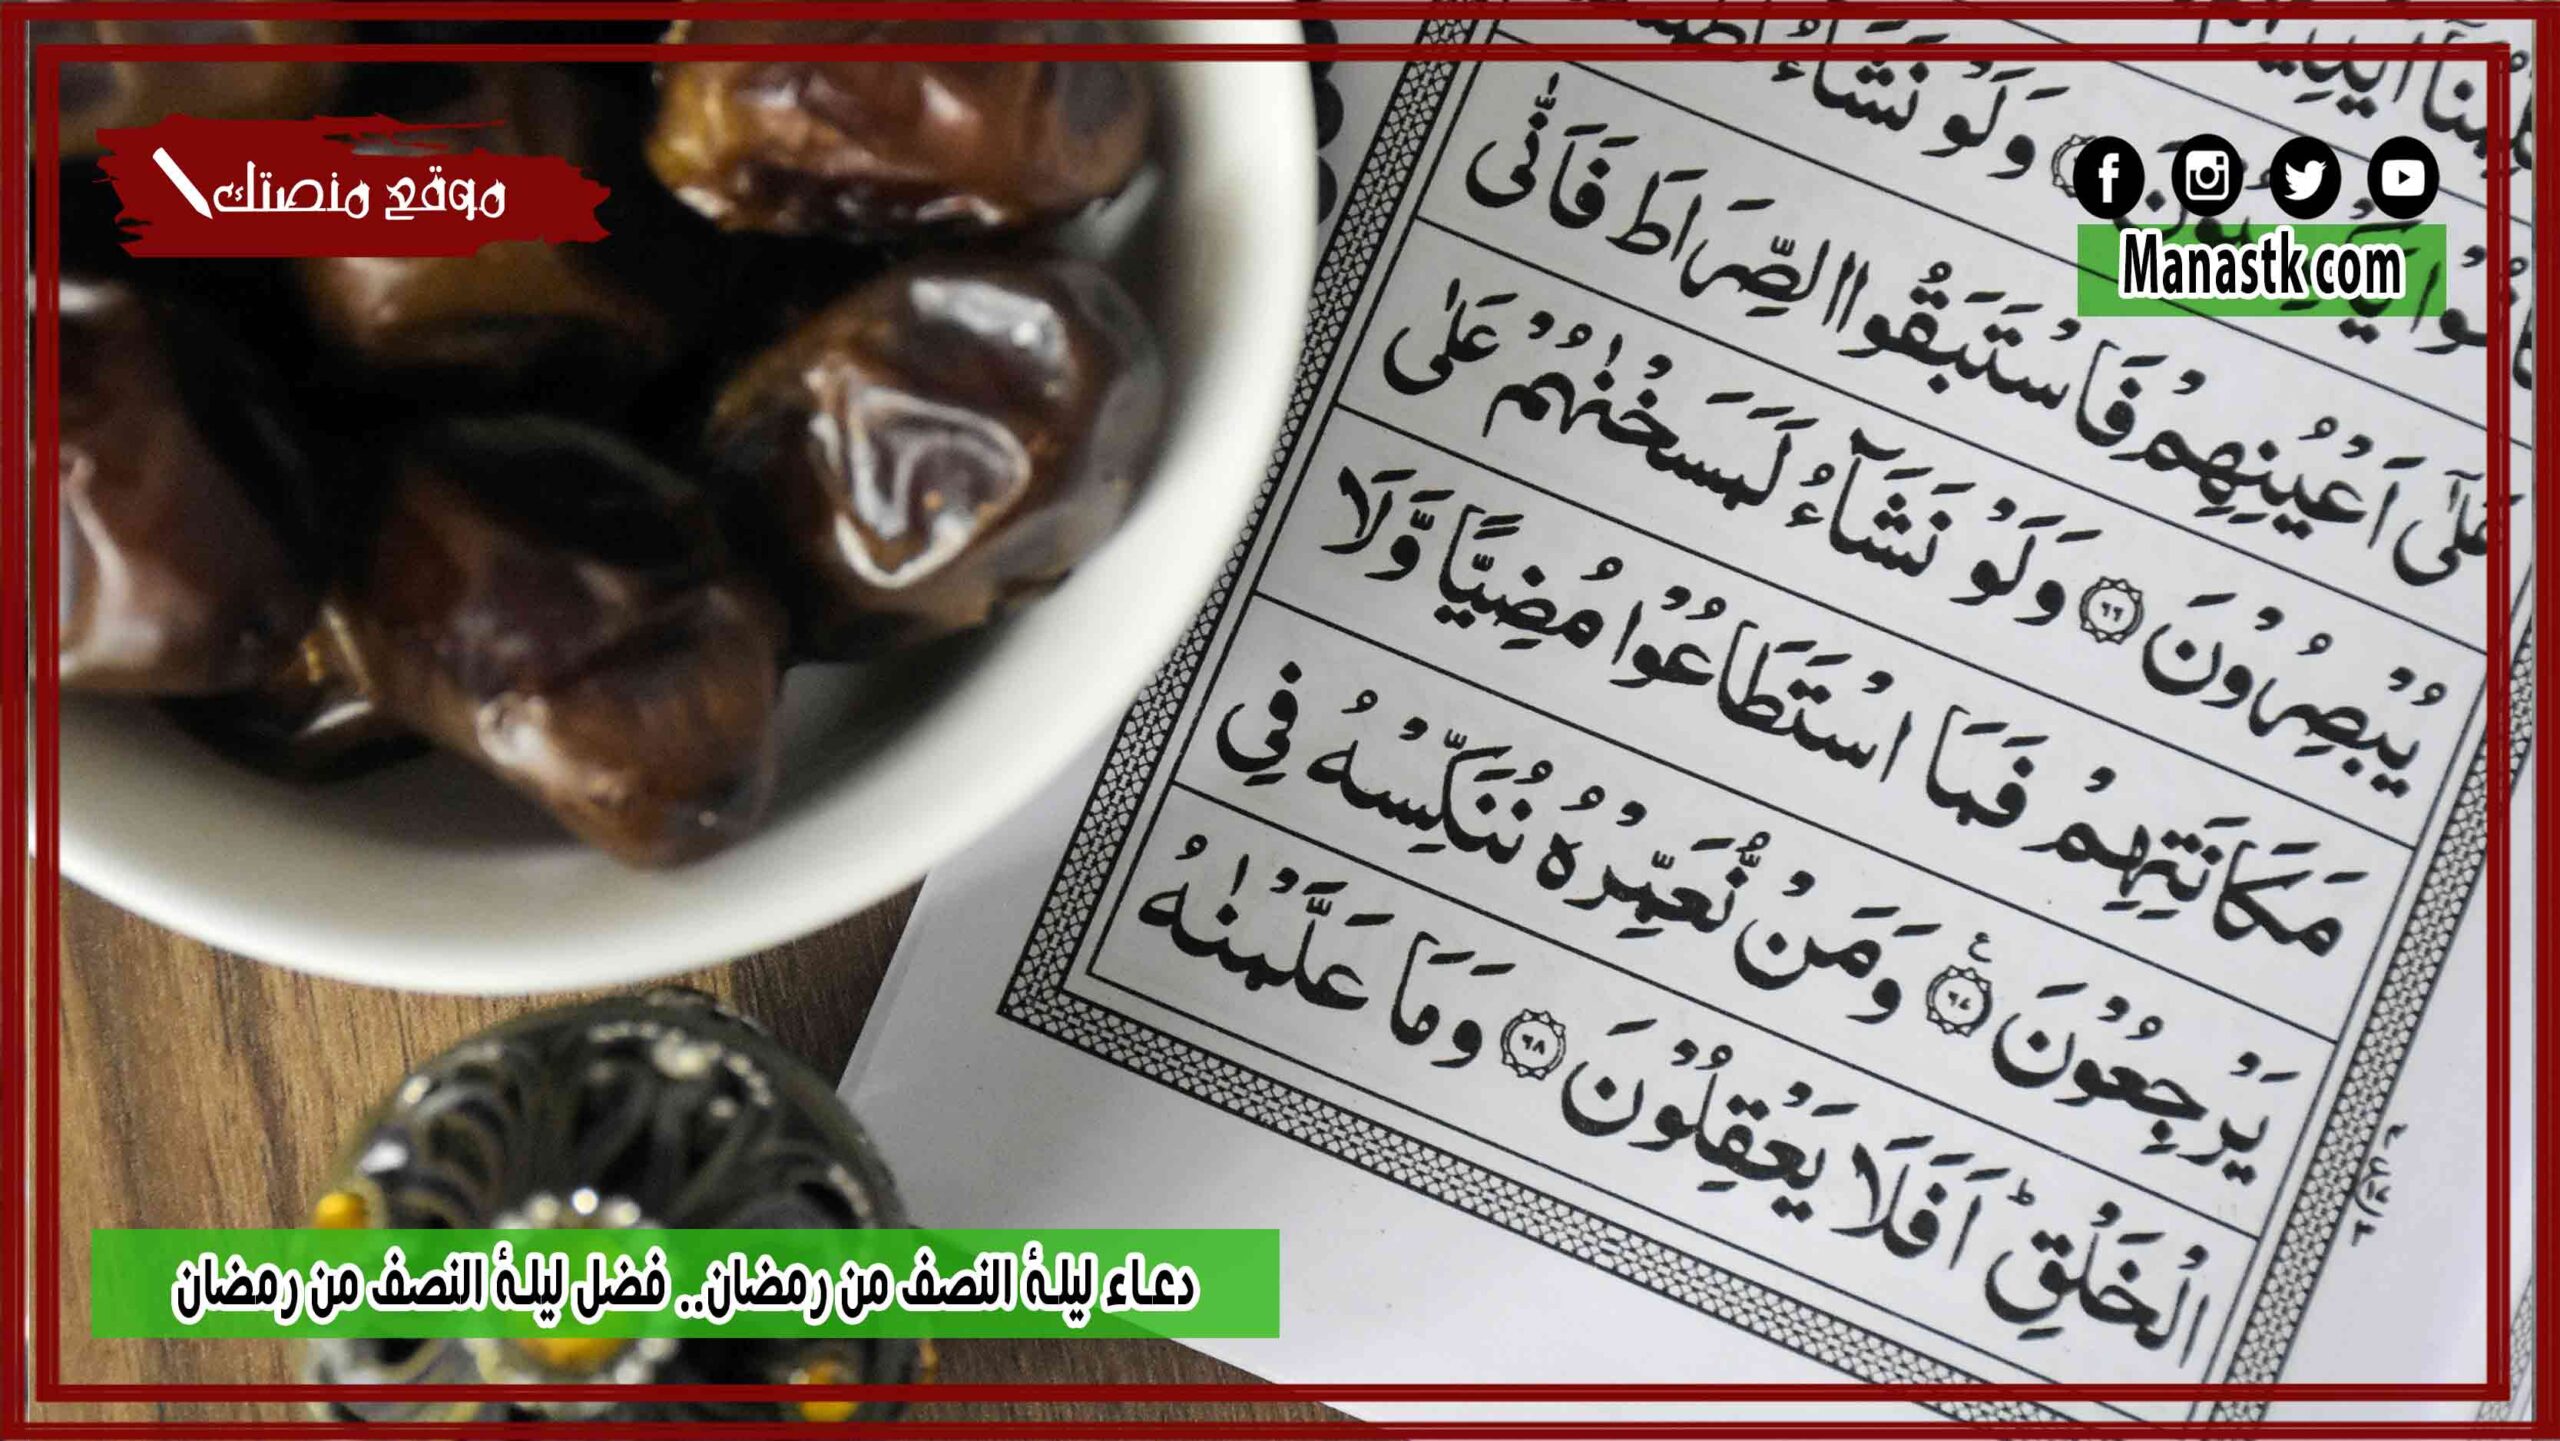 موقع منصتك
Manastk com
وَلَوْ نَشَآءُ
عَلٰٓى اَعْيُنِهِمْ فَاسْتَبَقُوا الصِّرَاطَ فَاَنّٰى
يُبْصِرُوْنَ ﴿٦٦﴾ وَلَوْ نَشَآءُ لَمَسَخْنٰهُمْ عَلٰى
مَكَانَتِهِمْ فَمَا اسْتَطَاعُوْا مُضِيًّا وَّلَا
يَرْجِعُوْنَ ﴿٦٧﴾ وَمَنْ نُّعَمِّرْهُ نُنَكِّسْهُ فِى
الْخَلْقِ ؕ اَفَلَا يَعْقِلُوْنَ ﴿٦٨﴾ وَمَا عَلَّمْنٰهُ
دعاء ليلة النصف من رمضان.. فضل ليلة النصف من رمضان